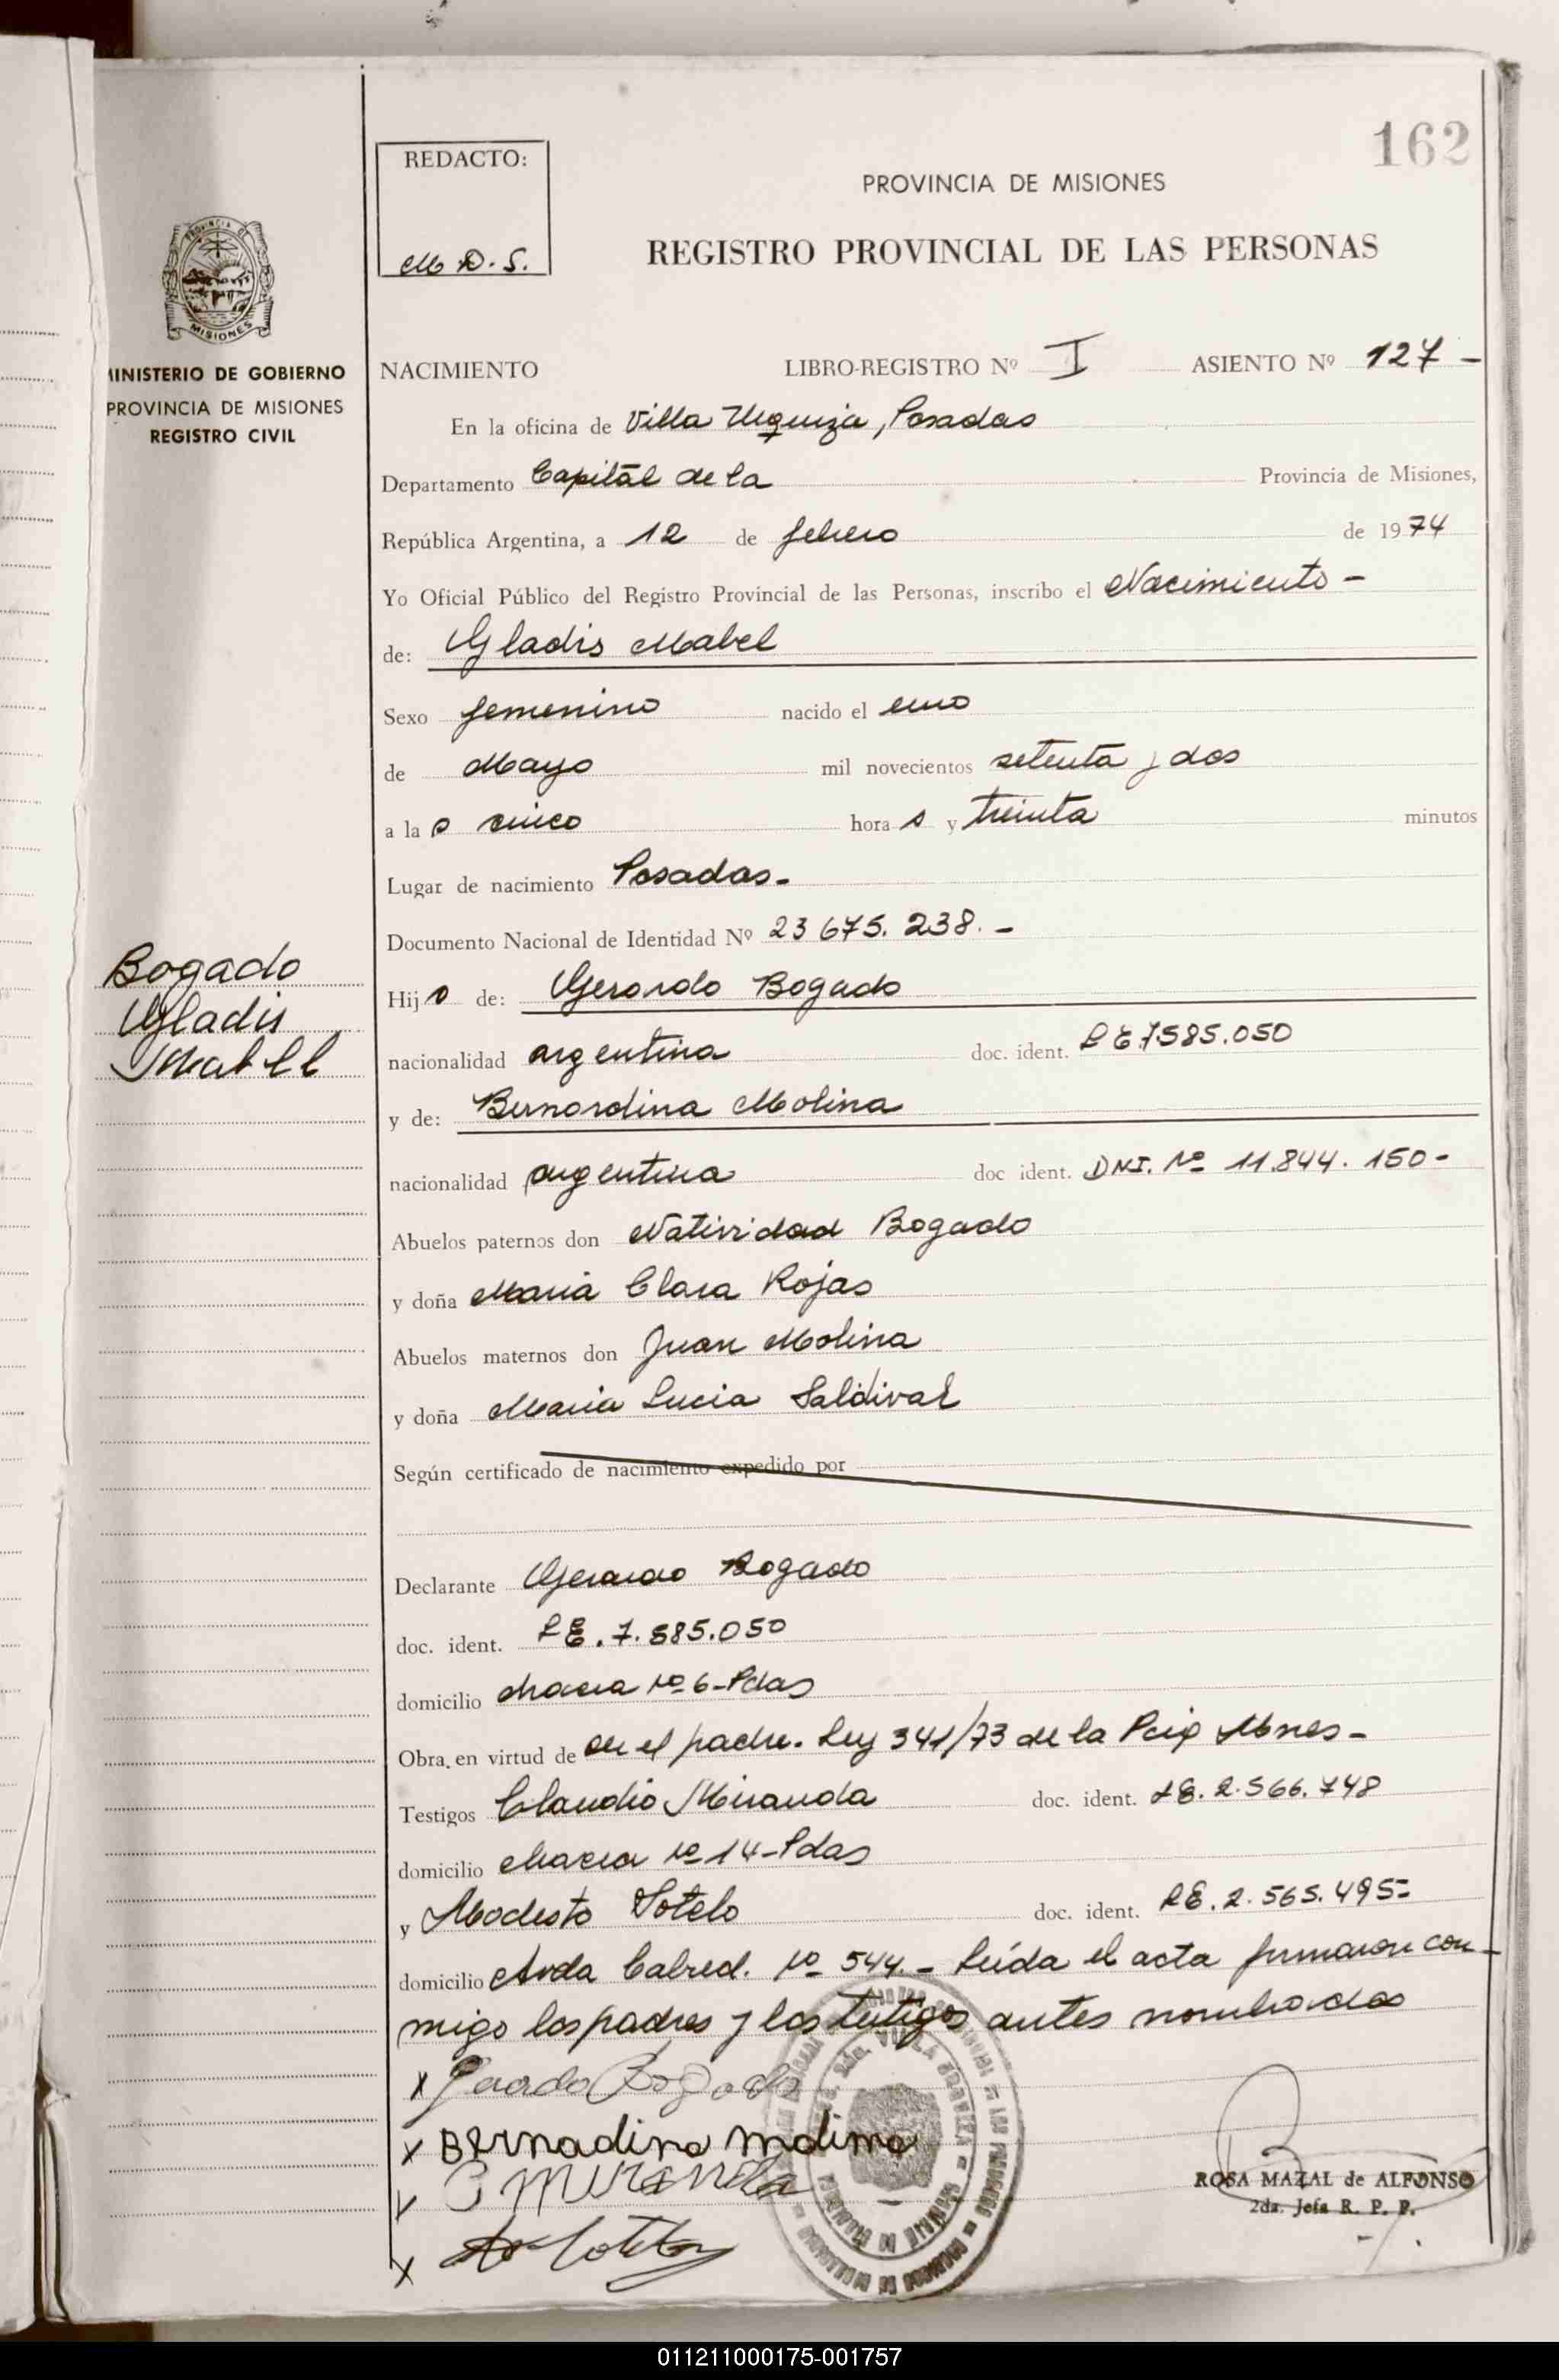 162
REDACTO:
M D. S.
PROVINCIA DE MISIONES
REGISTRO PROVINCIAL DE LAS PERSONAS
PROVINCIA DE
MISIONES
MINISTERIO DE GOBIERNO
PROVINCIA DE MISIONES
REGISTRO CIVIL
NACIMIENTO LIBRO-REGISTRO Nº I ASIENTO Nº 127 -
En la oficina de Villa Urquiza, Posadas
Departamento Capital de la Provincia de Misiones,
República Argentina, a 12 de febrero de 1974
Yo Oficial Público del Registro Provincial de las Personas, inscribo el Nacimiento -
de: Gladis Mabel
Sexo femenino nacido el uno
de Mayo mil novecientos setenta y dos
a la s cinco hora s y treinta minutos
Lugar de nacimiento Posadas.-
Documento Nacional de Identidad Nº 23 675. 238. -
Bogado
Gladis
Mabel
Hij o de: Gerardo Bogado
nacionalidad argentina doc. ident. LE 7.585.050
y de: Bernardina Molina
nacionalidad argentina doc ident. DNI. Nº 11.844. 150-
Abuelos paternos don Natividad Bogado
y doña Maria Clara Rojas
Abuelos maternos don Juan Molina
y doña Maria Lucia Saldivar
Según certificado de nacimiento expedido por
Declarante Gerardo Bogado
doc. ident. LE. 7. 585.050
domicilio chacra Nº 6-Pdas
Obra en virtud de ser el padre. Ley 341/73 de la Pcia Mnes-
Testigos Claudio Miranda doc. ident. LE. 2.566.748
domicilio chacra Nº 14-Pdas
y Modesto Sotelo doc. ident. LE. 2.565.495-
domicilio Avda Cabred. Nº 544.- Leída el acta firmaron con-
migo los padres y los testigos antes nombrados
x Gerardo Bogado
x Bernadina molina
C Miranda
x
ROSA MAZAL de ALFONSO
2da. Jefa R. P. P.
011211000175-001757